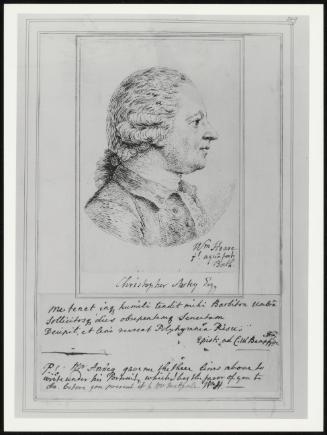 Wm Hoare
f. aqua forti
Bath
Christopher Anstey Esq.
me tenet inq. humili tendit mihi Barbiton umbra
Sollicitosq. dies obrepentemq. Senectam
Decipit, et leni mulcet Polyhymnia Risu.
Epist. ad C. W. Bampfylde
P.S. Mr Anstey gave me the three lines above to
write under his Portrait, which beg the favor of you to
do before you present it to Mr